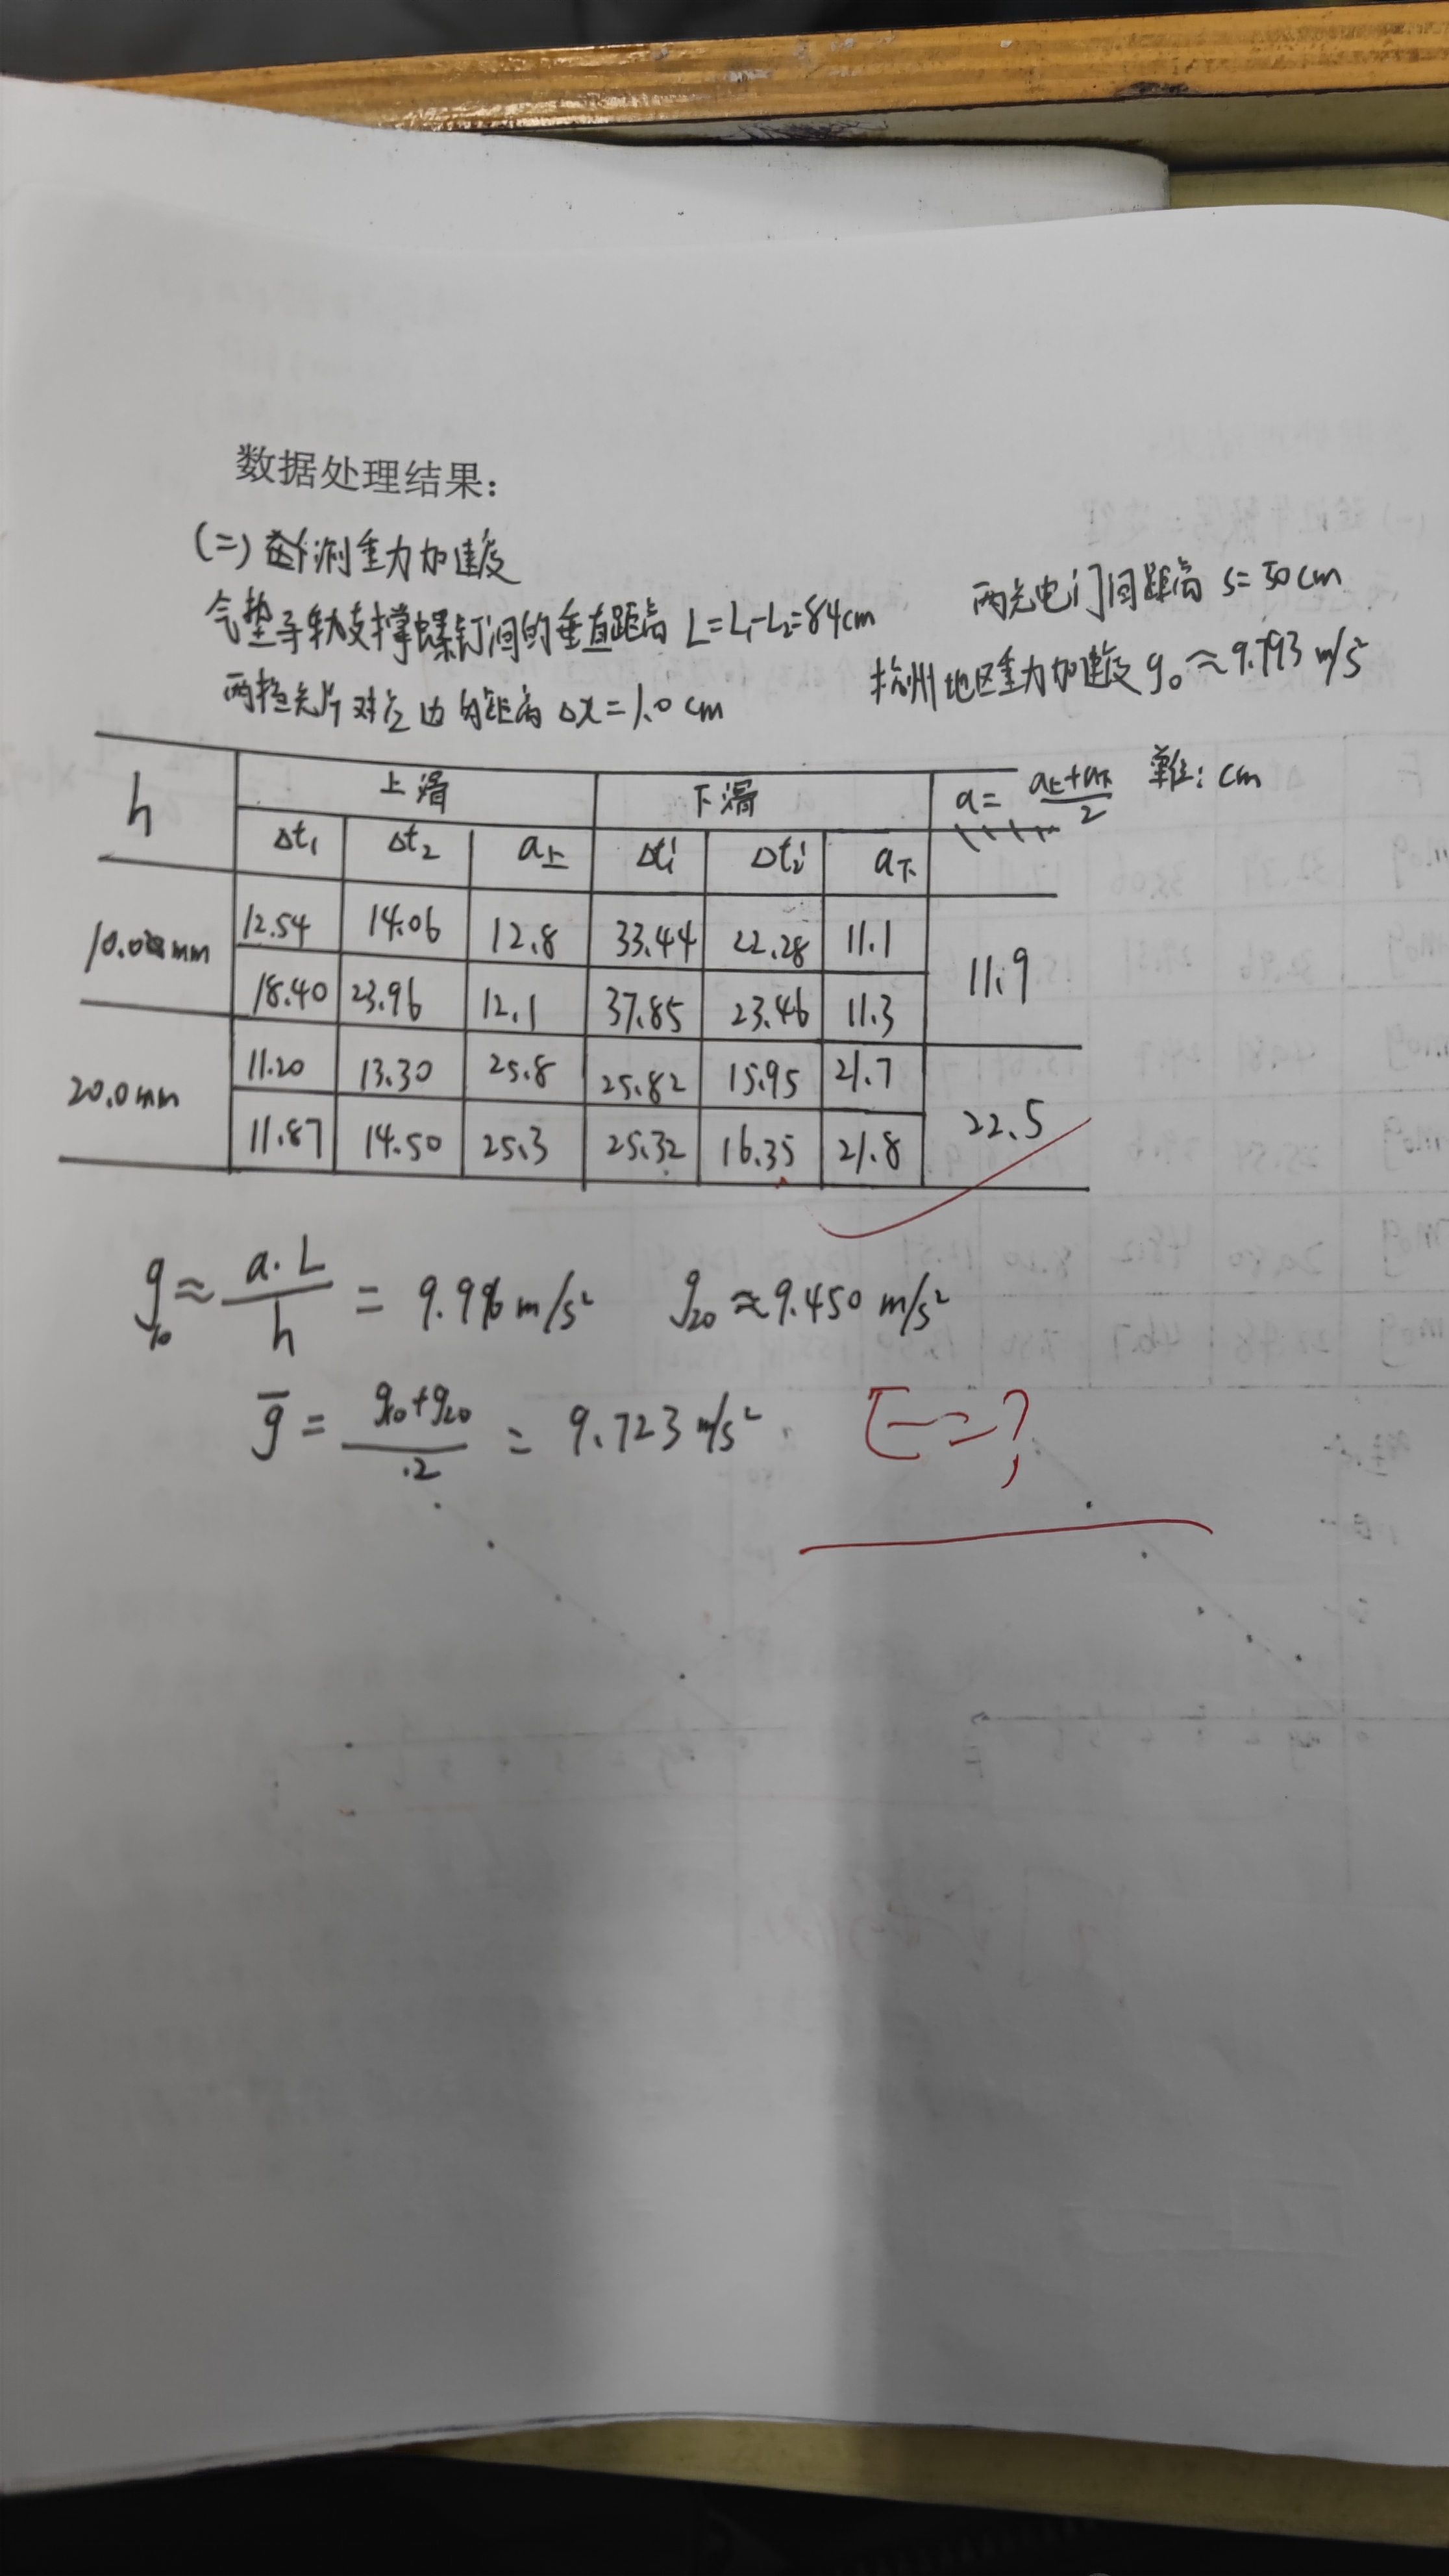 数据处理结果：
(二) 测重力加速度
气垫导轨支撑螺钉间的垂直距离 L=L₁-L₂=84cm 两光电门间距离 s=50cm
两挡光片对应边的距离 Δx=1.0cm 杭州地区重力加速度 g₀≈9.793 m/s²
h 上滑 下滑 a= (a上+a下)/2 单位: cm
Δt₁ Δt₂ a上 Δt₁' Δt₂' a下
10.0 mm 12.54 14.06 12.8 33.44 22.28 11.1 11.9
18.40 23.96 12.1 37.85 23.46 11.3
20.0mm 11.20 13.30 25.8 25.82 15.95 21.7 22.5
11.87 14.50 25.3 25.32 16.35 21.8
g₁₀≈ a·L/h = 9.996 m/s² g₂₀≈9.450 m/s²
ḡ = (g₁₀+g₂₀)/2 = 9.723 m/s² E=?